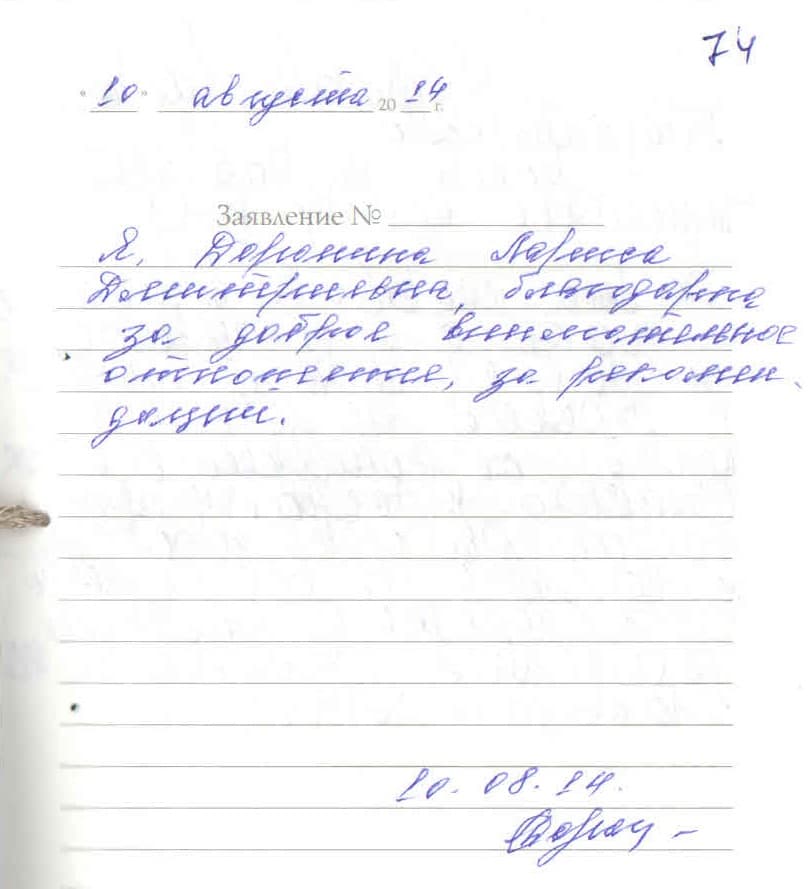 74
"10" августа 2014 г.
Заявление №
Я, Доронина Лариса
Дмитриевна, благодарна
за доброе внимательное
отношение, за рекомен-
дации.
10.08.14.